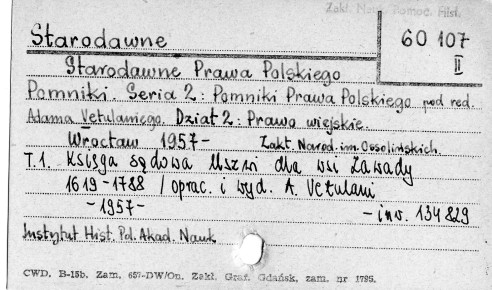 Zakł. Nauk Pomoc. Hist.
Starodawne
60 107
II
Starodawne Prawa Polskiego
Pomniki. Seria 2: Pomniki Prawa Polskiego pod red.
Adama Vetulaniego. Dział 2: Prawo wiejskie.
Wrocław 1957- Zakł. Narod. im. Ossolińskich.
T.1. Księga sądowa Uszwi dla wsi Zawady
1619-1788 / oprac. i wyd. A. Vetulani
-1957- - inw. 134829
Instytut Hist. Pol. Akad. Nauk
CWD. B-15b. Zam. 657-DW/On. Zakł. Graf. Gdańsk, zam. nr 1795.